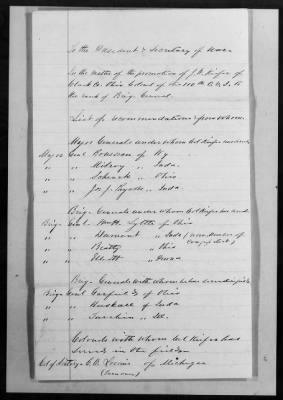 To the President & Secretary of War
In the matter of the promotion of J. W. Keifer of
Clark Co. Ohio Colonel of the 110th O. V. I. to
the rank of Brig. General.
List of recommendations & from whom.
Major Generals under whom Col Keifer has served
Major Genl Rousseau of Ky
" " Milroy " Inda.
" " Schenck " Ohio
" " Jos. J. Reynolds " Inda.
Brig. Generals under whom Col Keifer has served
Brig. Genl. Wm H. Lytle of Ohio
" " Dumont " Inda (now member of Congress elect)
" " Beatty " Ohio
" " Elliott "
Brig. Generals with whom he has served in field
Brig. Genl Garfield of Ohio
" " Haskall of Inda
" " Turchin " Ill.
Colonels with whom Col Keifer has
served in the field
Col of Artily C. O. Loomis of Michigan